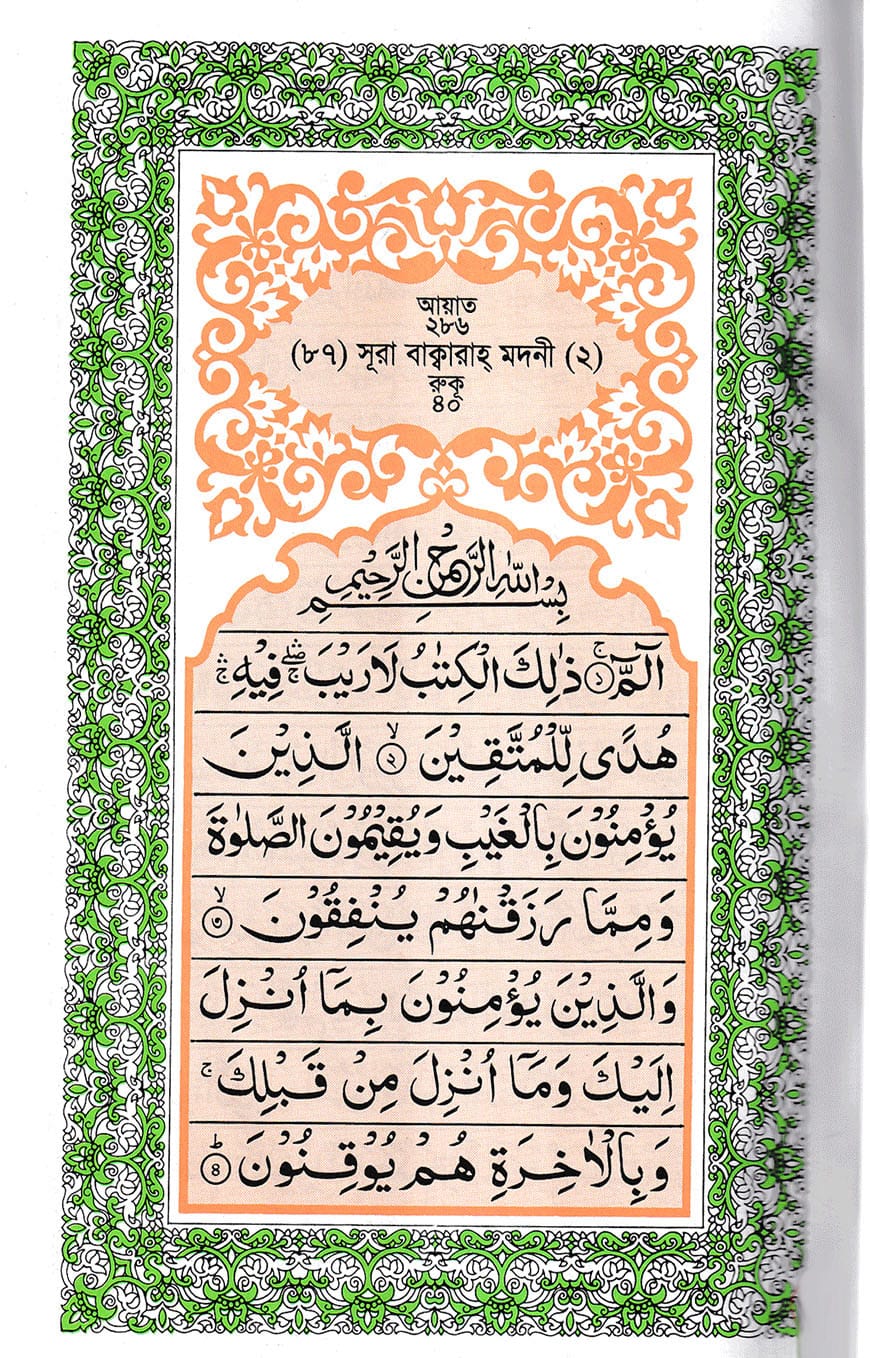 আয়াত
২৮৬
(৮৭) সূরা বাক্বারাহ্ মদনী (২)
রুকূ
৪০
بِسْمِ اللهِ الرَّحْمٰنِ الرَّحِيْمِ
الٓمّٓ ۚ﴿১﴾ ذٰلِكَ الْكِتٰبُ لَا رَيْبَ ۛۖۚ فِيْهِ ۛۚ
هُدًى لِّلْمُتَّقِيْنَ ۙ﴿২﴾ الَّذِيْنَ
يُؤْمِنُوْنَ بِالْغَيْبِ وَيُقِيْمُوْنَ الصَّلٰوةَ
وَمِمَّا رَزَقْنٰهُمْ يُنْفِقُوْنَ ۙ﴿৩﴾
وَالَّذِيْنَ يُؤْمِنُوْنَ بِمَآ اُنْزِلَ
اِلَيْكَ وَمَآ اُنْزِلَ مِنْ قَبْلِكَ ۚ
وَبِالْاٰخِرَةِ هُمْ يُوْقِنُوْنَ ؕ﴿৪﴾